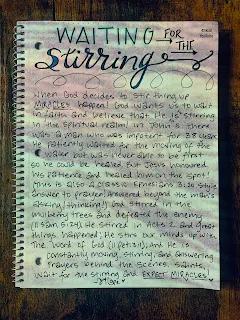 WAITING FOR
THE
Stirring
When God decides to stir things up
MIRACLES happen! God wants us to wait
in faith and believe that He is stirring
in the spiritual realm! In John 5 there
was a man who was impotent for 38 years.
He patiently waited for the moving of the
water but was never able to be first
so he could be healed. But Jesus honoured
his patience and healed him on the spot!
(This is also a classic Ephesians 3:20 style
answer to prayer! Answered beyond the man's
asking/thinking!) God stirred in the
mulberry trees and defeated the enemy
(II Sam. 5:24). He stirred in Acts 2 and great
things happened; He stirs our minds up with
The Word of God (II Pet 3:1), And He is
constantly moving, stirring, and answering
prayers behind the scenes. Saints,
wait for the stirring and EXPECT MIRACLES!